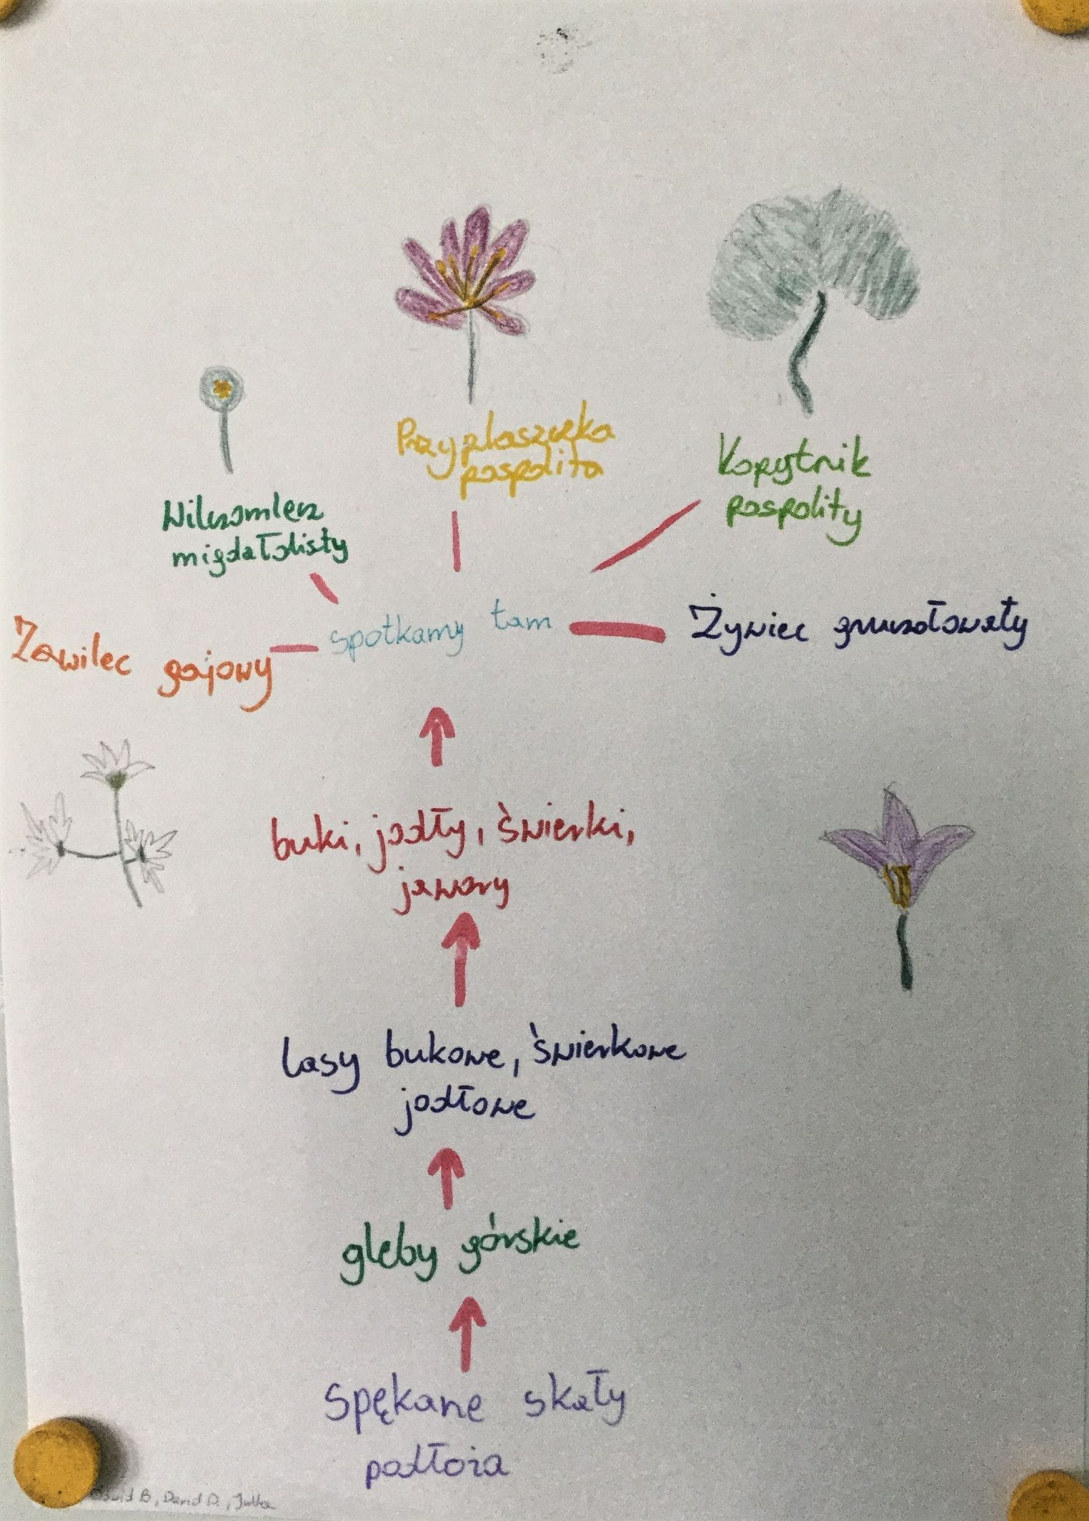 Przyplaszczka
pospolita
Kopytnik
pospolity
Wilczomlecz
migdałolisty
Zawilec gajowy
spotkamy tam
Żywiec gruczołowaty
buki, jodły, świerki,
jawory
lasy bukowe, świerkowe
jodłowe
gleby górskie
Spękane skały
podłoża
Dawid B, Dawid D., Julka